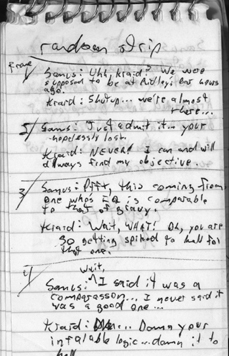 random strip
frame
1/ Samus: Uhh, Kraid? We were
supposed to be at Ridley's an hours
ago.
Kraid: Shutup... we're almost
there...
2/ Samus: Just admit it... your
hopelessly lost.
Kraid: NEVER! I can and will
always find my objective.
3/ Samus: Pfft, this coming from
one who's IQ is comparable
to that of gravy.
Kraid: Wait, WHAT! Oh, you are
so getting spiked to hell for
that one.
4/ Wait,
Samus: I said it was a
comparasson... I never said it
was a good one...
Kraid: ... Damn your
infalable logic... damn it to
hell